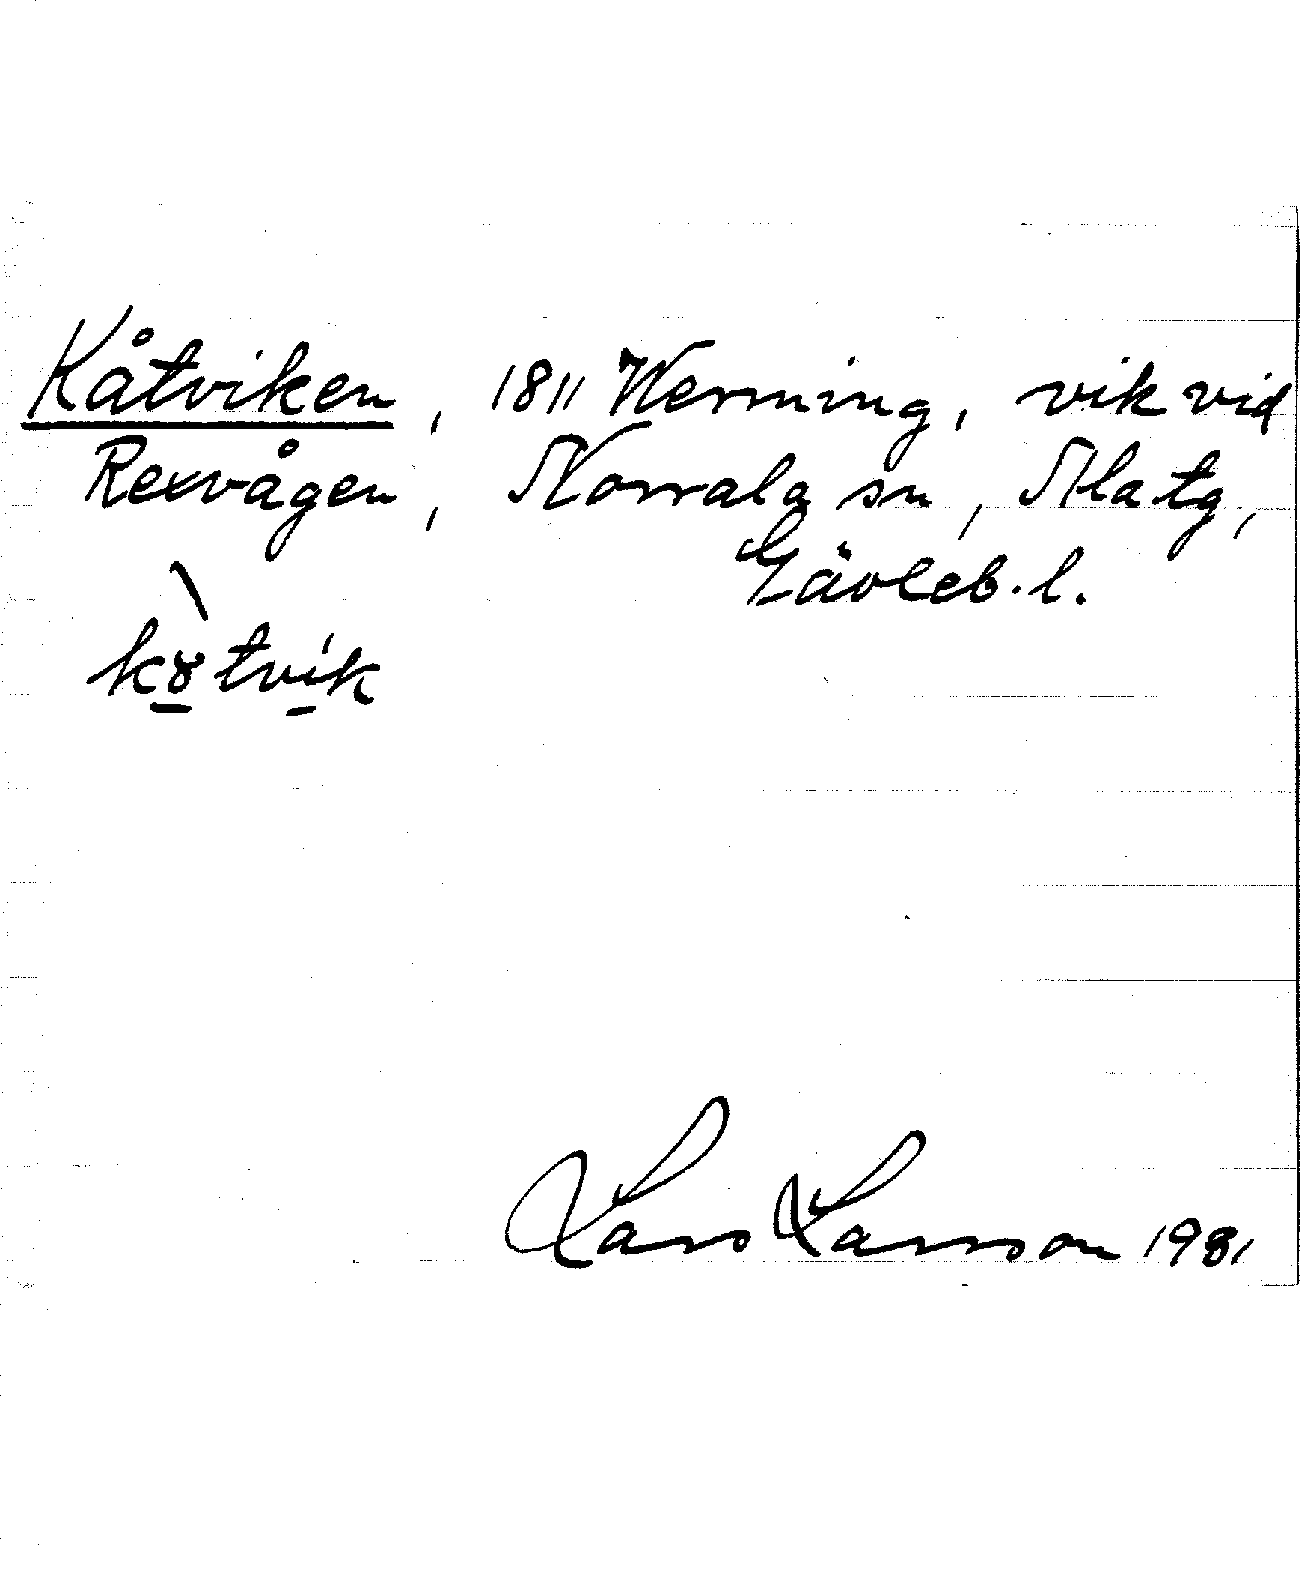 Kåtviken, 1811 Werming, vik vid
Rexvågen, Norrala sn, Ala tg,
Gävleb. l.
kɤtvik
Lars Larsson 1981